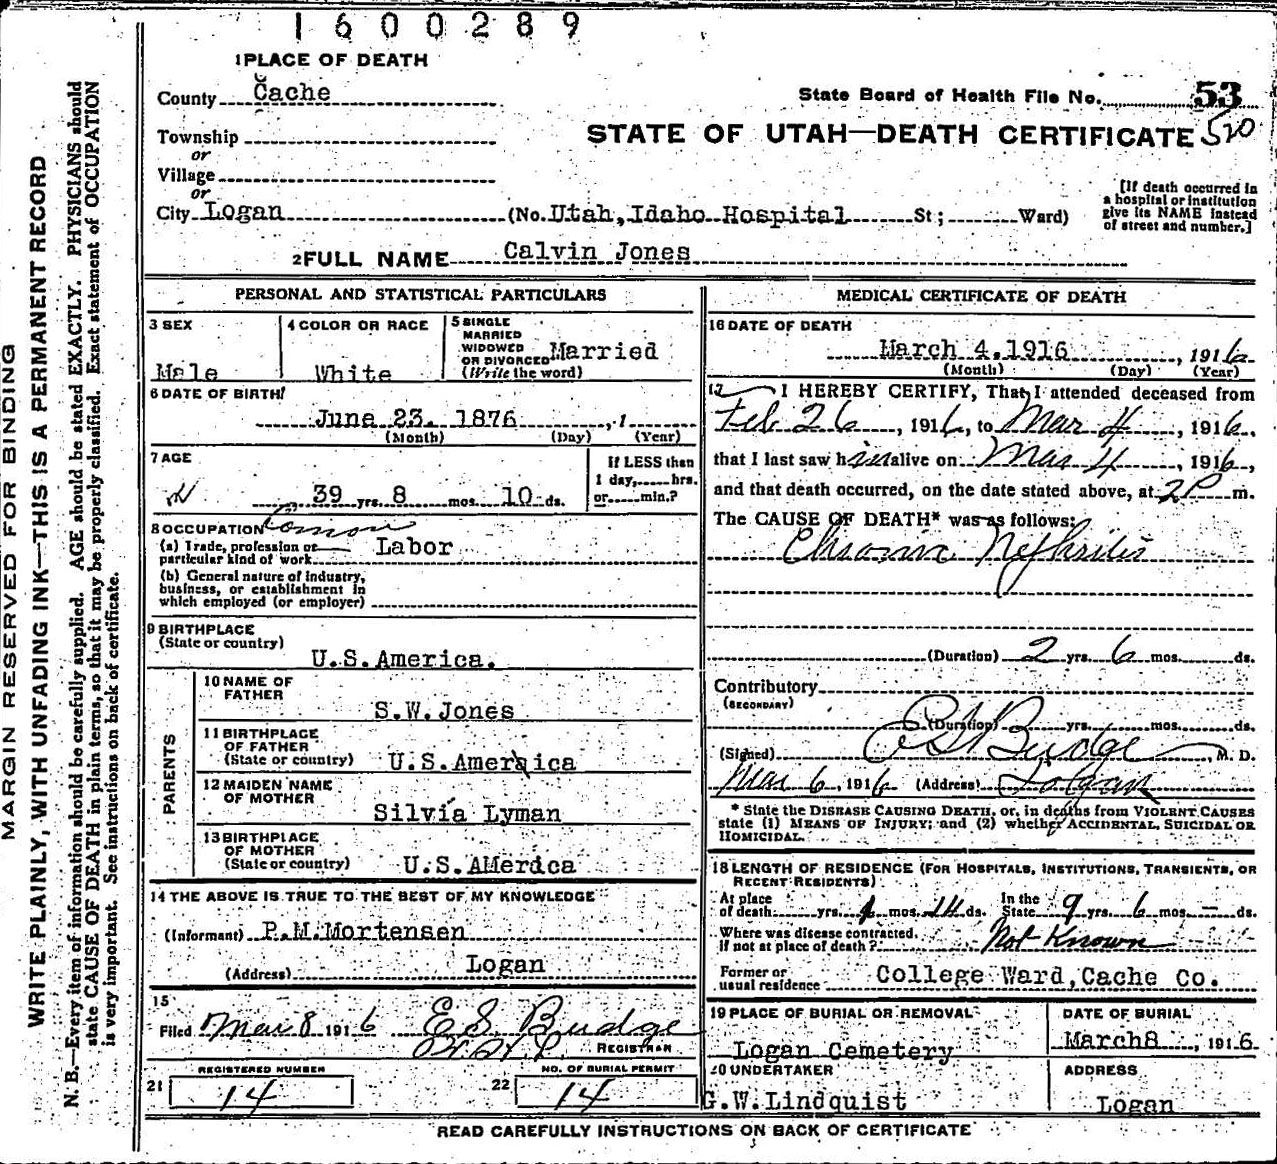 1600289
1 PLACE OF DEATH
County Cache
State Board of Health File No. 53
Township
STATE OF UTAH—DEATH CERTIFICATE 520
or
Village
or
City Logan (No. Utah, Idaho Hospital St; Ward)
[If death occurred in a hospital or institution give its NAME instead of street and number.]
2 FULL NAME Calvin Jones
PERSONAL AND STATISTICAL PARTICULARS
3 SEX
Male
4 COLOR OR RACE
White
5 SINGLE
MARRIED
WIDOWED
OR DIVORCED Married
(Write the word)
6 DATE OF BIRTH
June 23. 1876 , 1
(Month) (Day) (Year)
7 AGE
39 yrs. 8 mos. 10 ds.
If LESS than
1 day, hrs.
or min.?
8 OCCUPATION Comon
(a) Trade, profession or
particular kind of work Labor
(b) General nature of industry,
business, or establishment in
which employed (or employer)
9 BIRTHPLACE
(State or country)
U.S.America.
PARENTS
10 NAME OF
FATHER
S.W.Jones
11 BIRTHPLACE
OF FATHER
(State or country) U.S.America
12 MAIDEN NAME
OF MOTHER
Silvia Lyman
13 BIRTHPLACE
OF MOTHER
(State or country) U.S.AMerica
14 THE ABOVE IS TRUE TO THE BEST OF MY KNOWLEDGE
(Informant) P.M.Mortensen
(Address) Logan
15
Filed Mar 8 1916 E S Budge
REGISTRAR
REGISTERED NUMBER
21 14
NO. OF BURIAL PERMIT
22 14
MEDICAL CERTIFICATE OF DEATH
16 DATE OF DEATH
March 4.1916 , 1916
(Month) (Day) (Year)
17 I HEREBY CERTIFY, That I attended deceased from
Feb 26 , 1916, to Mar 4 , 1916,
that I last saw him alive on Mar 4 , 1916,
and that death occurred, on the date stated above, at 2P m.
The CAUSE OF DEATH* was as follows:
Chronic Nephritis
(Duration) 2 yrs. 6 mos. ds.
Contributory
(SECONDARY)
(Duration) yrs. mos. ds.
(Signed) Budge , M. D.
Mar 6 , 1916 (Address) Logan
* State the DISEASE CAUSING DEATH, or, in deaths from VIOLENT CAUSES
state (1) MEANS OF INJURY; and (2) whether ACCIDENTAL, SUICIDAL OR
HOMICIDAL.
18 LENGTH OF RESIDENCE (FOR HOSPITALS, INSTITUTIONS, TRANSIENTS, OR
RECENT RESIDENTS)
At place
of death yrs. mos. 14 ds.
In the
State 9 yrs. 6 mos. — ds.
Where was disease contracted,
if not at place of death? Not Known
Former or
usual residence College Ward, Cache Co.
19 PLACE OF BURIAL OR REMOVAL
Logan Cemetery
DATE OF BURIAL
March8 , 1916
20 UNDERTAKER
G.W.Lindquist
ADDRESS
Logan
READ CAREFULLY INSTRUCTIONS ON BACK OF CERTIFICATE
MARGIN RESERVED FOR BINDING
WRITE PLAINLY, WITH UNFADING INK—THIS IS A PERMANENT RECORD
N. B.—Every item of information should be carefully supplied. AGE should be stated EXACTLY. PHYSICIANS should
state CAUSE OF DEATH in plain terms, so that it may be properly classified. Exact statement of OCCUPATION
is very important. See instructions on back of certificate.